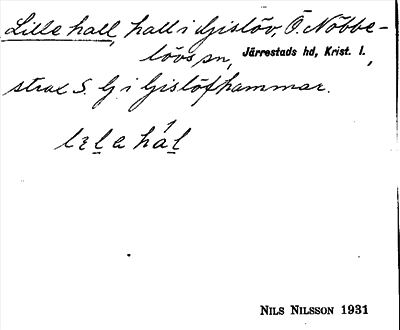 Lille hall, hall i Gislöv, Ö. Nöbbe-
lövs sn, Järrestads hd, Krist. l.,
strax S. G. i Gislöfhammar.
lɛlahál
NILS NILSSON 1931